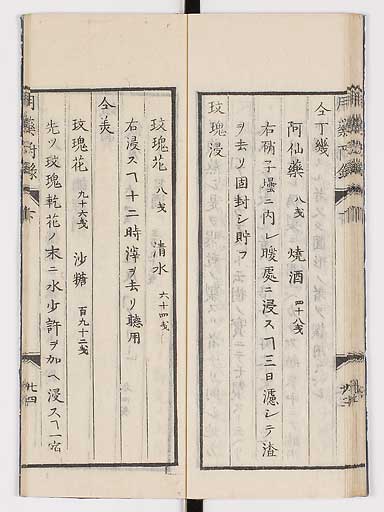 仝丁幾
阿仙藥 八戔 焼酒 四十八戔
右硝子壜ニ内レ暖處ニ浸スヿ三日濾シテ渣
ヲ去リ固封シ貯フ
玫瑰浸
玫瑰花 八戔 清水 六十四戔
右浸スヿ十二時滓ヲ去リ聽用
仝煎
玫瑰花 九十六戔 沙糖 百九十二戔
先ツ玫瑰乾花ノ末ニ水少許ヲ加ヘ浸スヿ一宿
廿四